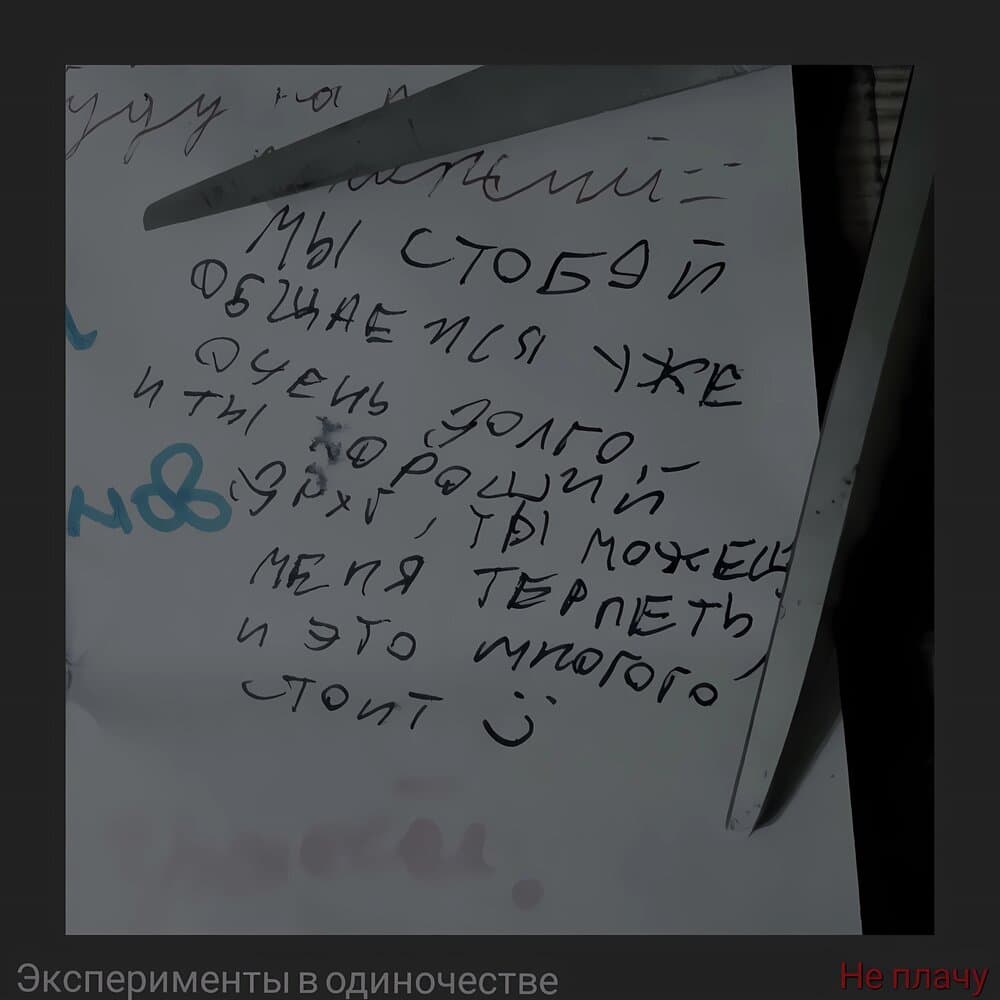 уду на
МЫ СТОБОЙ
ОБЩАЕМСЯ УЖЕ
ОЧЕНЬ ДОЛГО,
И ТЫ ХОРОШИЙ
ДРУГ, ТЫ МОЖЕШ
МЕНЯ ТЕРПЕТЬ,
И ЭТО МНОГОГО
СТОИТ
Эксперименты в одиночестве
Не плачу